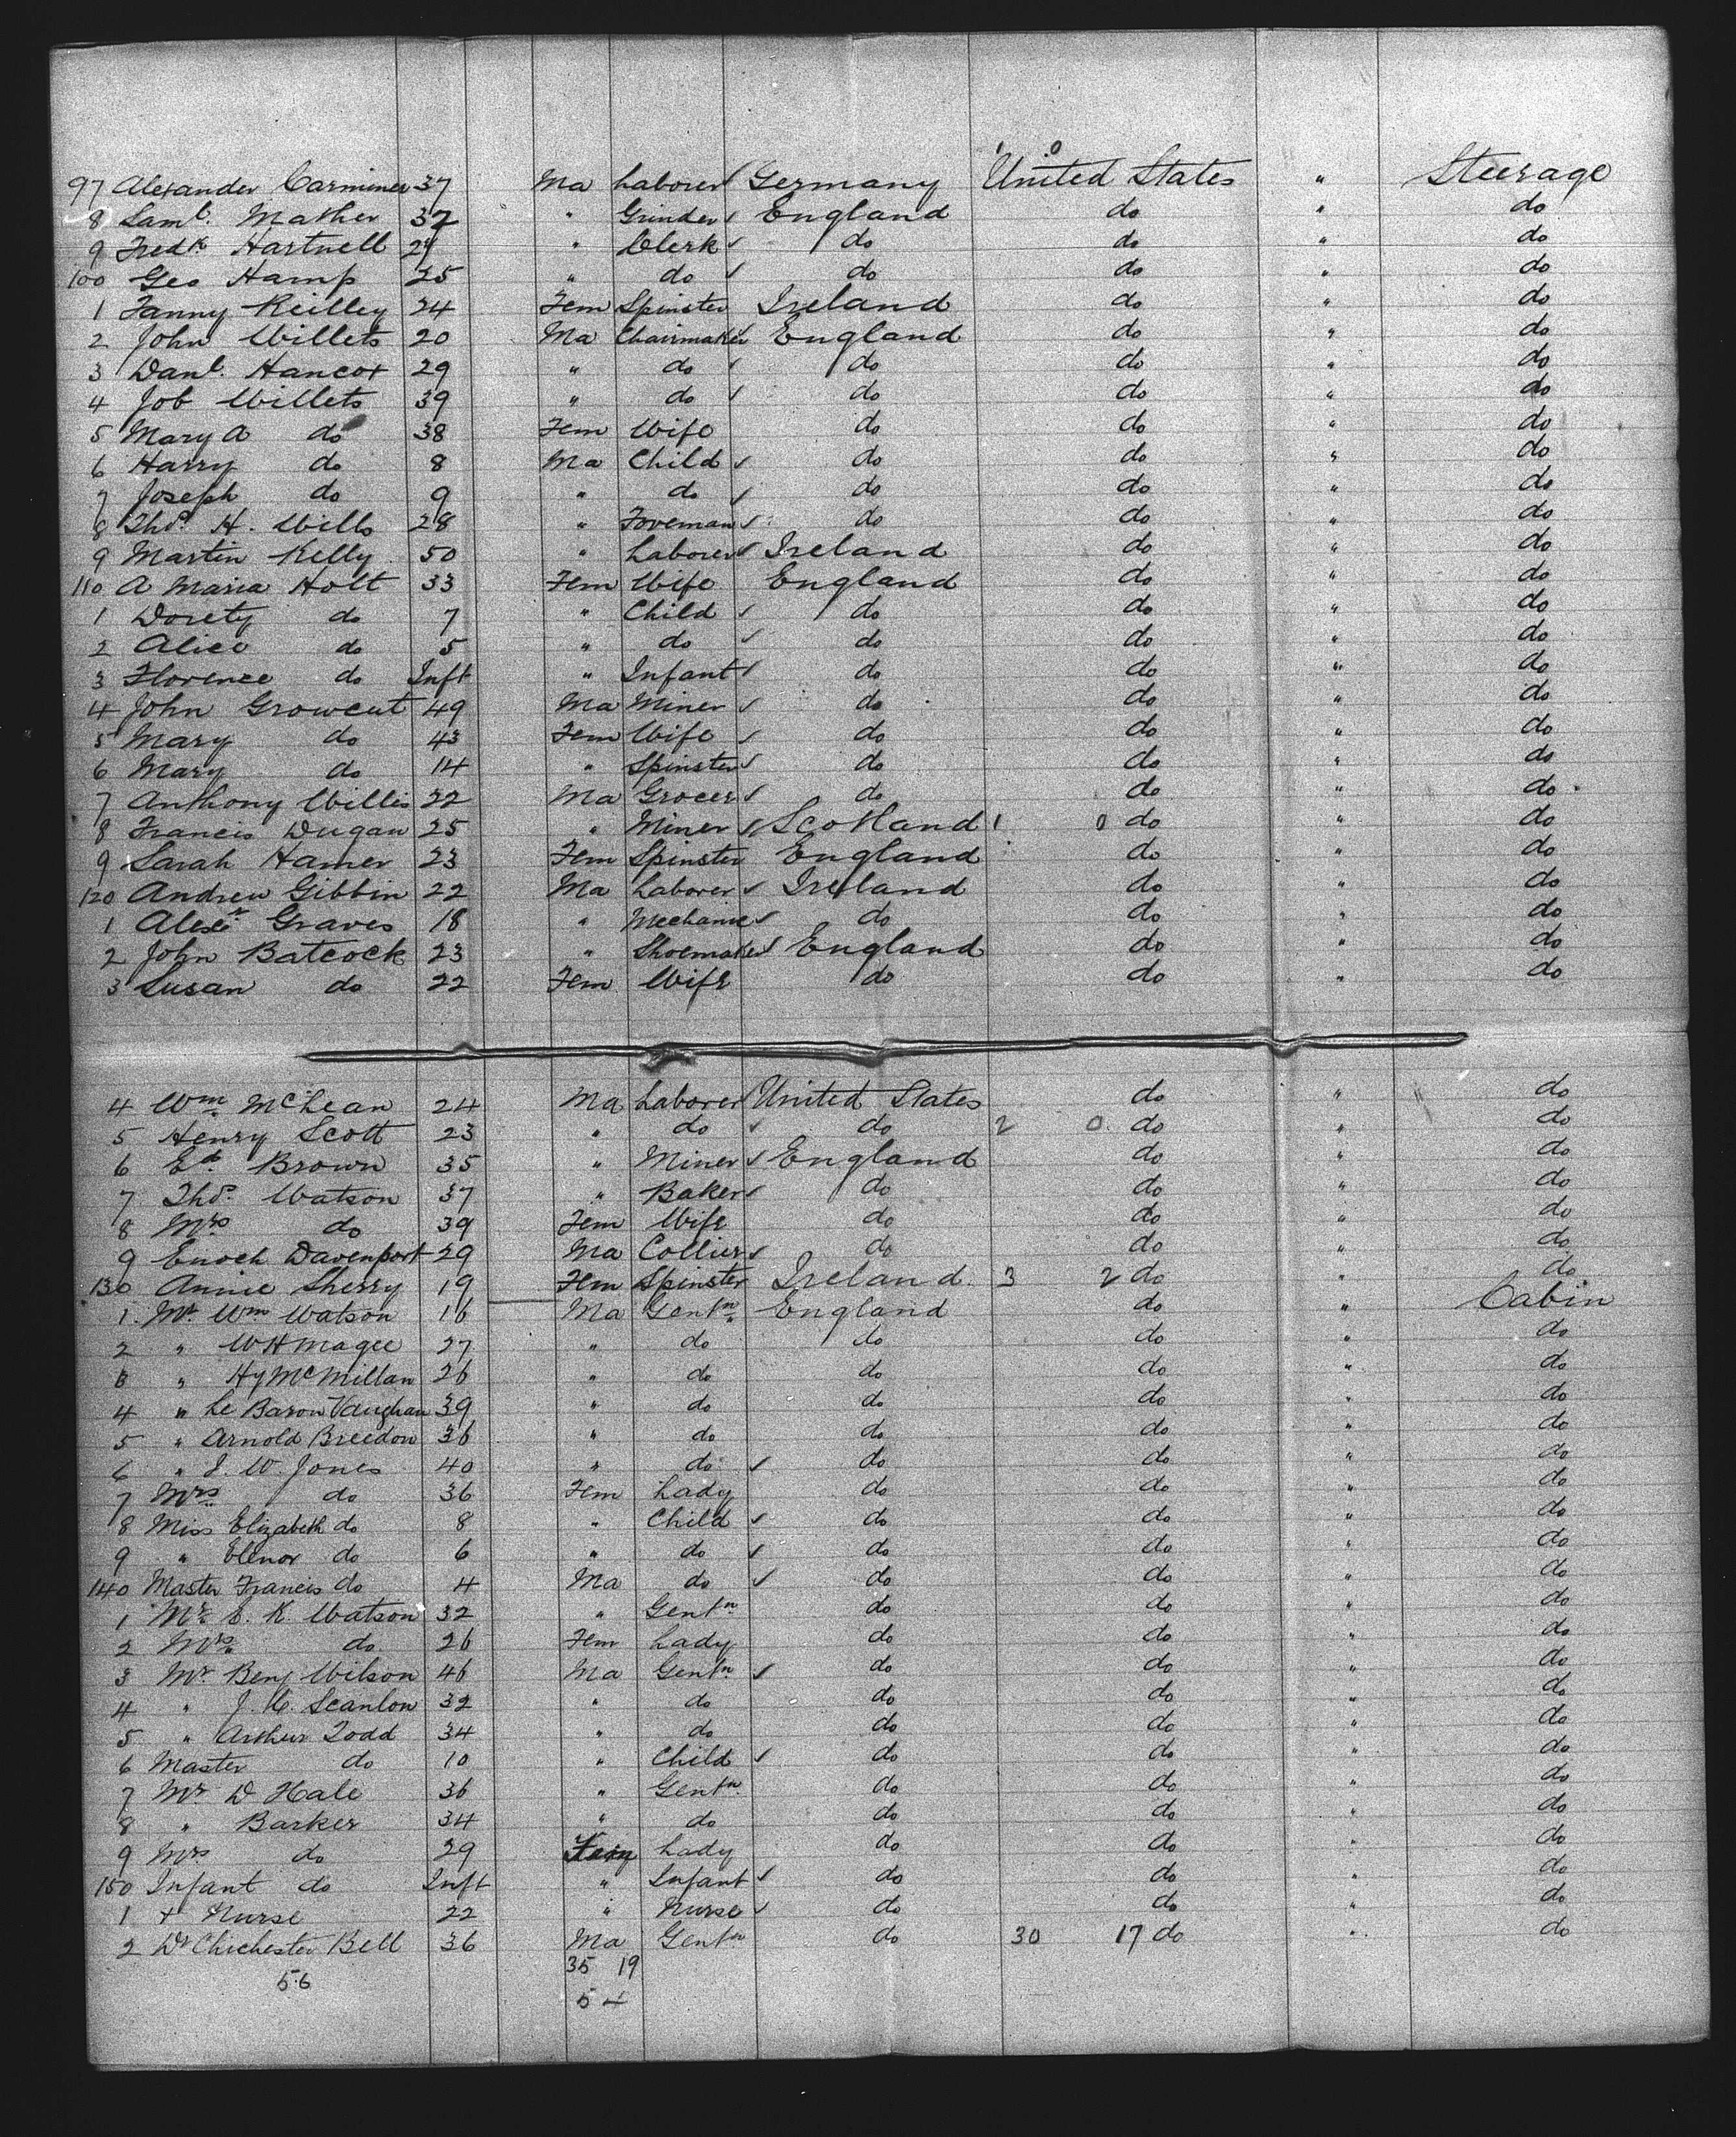 1 0
97 Alexander Carminer 37 Ma Laborer Germany United States " Steerage
8 Saml. Mather 32 " Grinder England do " do
9 Fredk. Hartnell 24 " Clerk do do " do
100 Geo Hamp 25 " do do do " do
1 Fanny Reilley 24 Fem Spinster Ireland do " do
2 John Willets 20 Ma Chairmaker England do " do
3 Danl. Hancox 29 " do do do " do
4 Job Willets 39 " do do do " do
5 Mary A do 38 Fem Wife do do " do
6 Harry do 8 Ma Child do do " do
7 Joseph do 9 " do do do " do
8 Thos. H. Wills 28 " Foreman do do " do
9 Martin Kelly 50 " Laborer Ireland do " do
110 A Maria Holt 33 Fem Wife England do " do
1 Dorety do 7 " Child do do " do
2 Alice do 5 " do do do " do
3 Florence do Inft " Infant do do " do
4 John Growcut 49 Ma Miner do do " do
5 Mary do 43 Fem Wife do do " do
6 Mary do 14 " Spinster do do " do
7 Anthony Willis 22 Ma Grocer do do " do
8 Francis Dugan 25 " Miner Scotland 1 0 do " do
9 Sarah Hamer 23 Fem Spinster England do " do
120 Andrew Gibbin 22 Ma Laborer Ireland do " do
1 Alexr. Graves 18 " Mechanic do do " do
2 John Batcock 23 " Shoemaker England do " do
3 Susan do 22 Fem Wife do do " do
4 Wm. McLean 24 Ma Laborer United States do " do
5 Henry Scott 23 " do do 2 0 do " do
6 Ed. Brown 35 " Miner England do " do
7 Thos. Watson 37 " Baker do do " do
8 Mrs. do 39 Fem Wife do do " do
9 Enoch Davenport 29 Ma Collier do do " do
130 Annie Sherry 19 Fem Spinster Ireland 3 2 do " do
1 Mr. Wm Watson 16 Ma Gentn. England do " Cabin
2 " W H Magee 27 " do do do " do
3 " Hy McMillan 26 " do do do " do
4 " Le Baron Vaughan 39 " do do do " do
5 " Arnold Breedon 36 " do do do " do
6 " J. W. Jones 40 " do do do " do
7 Mrs. do 36 Fem Lady do do " do
8 Miss Elizabeth do 8 " Child do do " do
9 " Elenor do 6 " do do do " do
140 Master Francis do 4 Ma do do do " do
1 Mr. E. K. Watson 32 " Gentn. do do " do
2 Mrs. do 26 Fem Lady do do " do
3 Mr. Benj Wilson 46 Ma Gentn. do do " do
4 " Scanlon 32 " do do do " do
5 " Arthur Todd 34 " do do do " do
6 Master do 10 " Child do do " do
7 Mr. D Hale 36 " Gentn. do do " do
8 " Barker 34 " do do do " do
9 Mrs do 29 Fem Lady do do " do
150 Infant do Inft " Infant do do " do
1 + Nurse 22 " Nurse do do " do
2 Dr Chichester Bell 36 Ma Gentn do 30 17 do " do
56 35 19
54